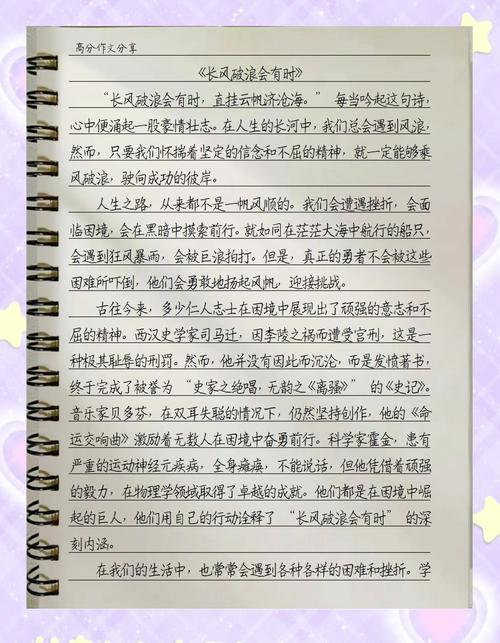 高分作文分享
《长风破浪会有时》
“长风破浪会有时，直挂云帆济沧海。”每当吟起这句诗，
心中便涌起一股豪情壮志。在人生的长河中，我们总会遇到风浪，
然而，只要我们怀揣着坚定的信念和不屈的精神，就一定能够乘
风破浪，驶向成功的彼岸。
人生之路，从来都不是一帆风顺的。我们会遭遇挫折，会面
临困境，会在黑暗中摸索前行。就如同在茫茫大海中航行的船只，
会遇到狂风暴雨，会被巨浪拍打。但是，真正的勇者不会被这些
困难所吓倒，他们会勇敢地扬起风帆，迎接挑战。
古往今来，多少仁人志士在困境中展现出了顽强的意志和不
屈的精神。西汉史学家司马迁，因李陵之祸而遭受宫刑，这是一
种极其耻辱的刑罚。然而，他并没有因此而沉沦，而是发愤著书，
终于完成了被誉为“史家之绝唱，无韵之《离骚》”的《史记》。
音乐家贝多芬，在双耳失聪的情况下，仍然坚持创作，他的《命
运交响曲》激励着无数人在困境中奋勇前行。科学家霍金，患有
严重的运动神经元疾病，全身瘫痪，不能说话，但他凭借着顽强
的毅力，在物理学领域取得了卓越的成就。他们都是在困境中崛
起的巨人，他们用自己的行动诠释了“长风破浪会有时”的深
刻内涵。
在我们的生活中，也常常会遇到各种各样的困难和挫折。学